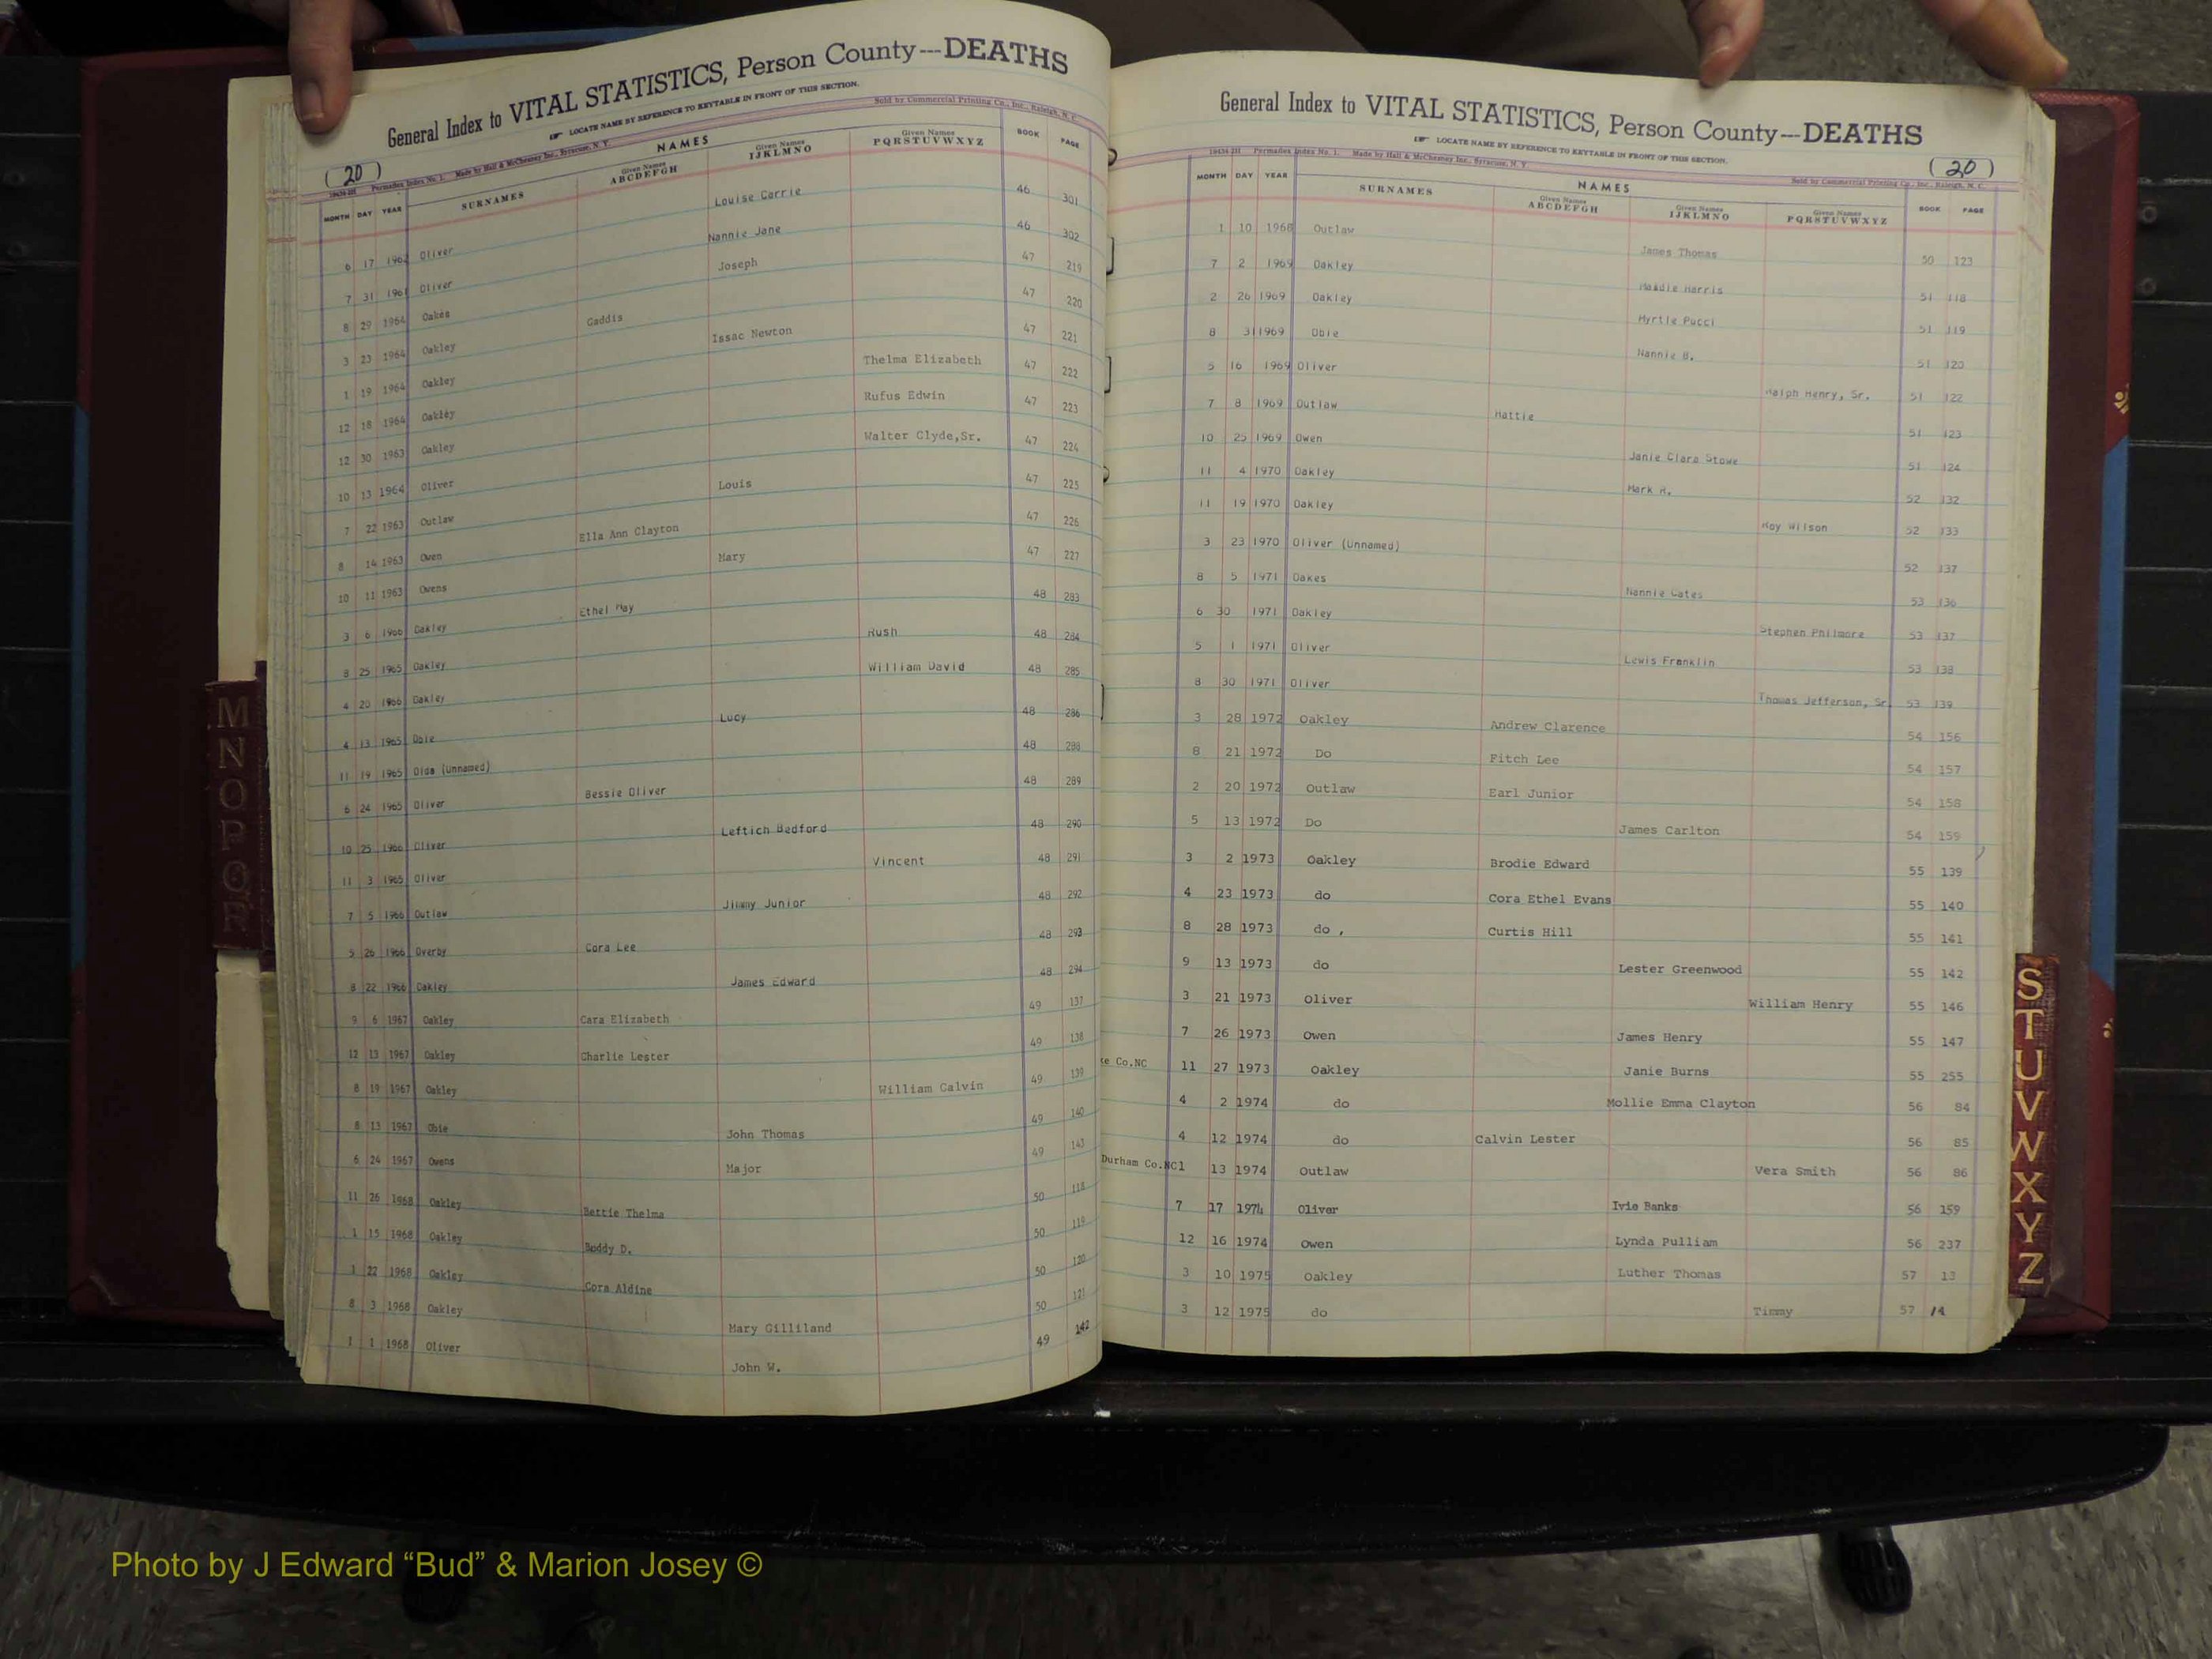 General Index to VITAL STATISTICS, Person County---DEATHS
LOCATE NAME BY REFERENCE TO KEYTABLE IN FRONT OF THIS SECTION.
(20) Permadex Index No. 1. Made by Hall & McChesney Inc., Syracuse, N. Y. Sold by Commercial Printing Co., Inc., Raleigh, N. C.
NAMES
MONTH DAY YEAR SURNAMES Given Names ABCDEFGH Given Names IJKLMNO Given Names PQRSTUVWXYZ BOOK PAGE
6 17 Oliver Louise Carrie 46 301
7 31 1961 Oliver Nannie Jane 46 302
8 29 1964 Oakes Joseph 47 219
3 23 1964 Oakley Gaddis 47 220
1 19 1964 Oakley Issac Newton 47 221
12 18 1964 Oakley Thelma Elizabeth 47 222
12 30 1963 Oakley Rufus Edwin 47 223
10 13 1964 Oliver Walter Clyde,Sr. 47 224
7 22 1963 Outlaw Louis 47 225
8 14 1963 Owen Ella Ann Clayton 47 226
10 11 1963 Owens Mary 47 227
3 6 1966 Oakley Ethel May 48 283
8 25 1965 Oakley Rush 48 284
4 20 1966 Oakley William David 48 285
4 13 1965 Obie Lucy 48 286
11 19 1965 Olds (Unnamed) 48 288
6 24 1965 Oliver Bessie Oliver 48 289
10 25 1966 Oliver Leftich Bedford 48 290
11 3 1965 Oliver Vincent 48 291
7 5 1966 Outlaw Jimmy Junior 48 292
5 26 1966 Overby Cora Lee 48 293
8 22 1966 Oakley James Edward 48 294
9 6 1967 Oakley Cara Elizabeth 49 137
12 13 1967 Oakley Charlie Lester 49 138
8 19 1967 Oakley William Calvin 49 139
8 13 1967 Obie John Thomas 49 140
6 24 1967 Owens Major 49 143
11 26 1968 Oakley Bettie Thelma 50 118
1 15 1968 Oakley Buddy D. 50 119
1 22 1968 Oakley Cora Aldine 50 120
8 3 1968 Oakley Mary Gilliland 50 121
1 1 1968 Oliver John W. 49 142
M
N
O
P
Q
R
General Index to VITAL STATISTICS, Person County---DEATHS
LOCATE NAME BY REFERENCE TO KEYTABLE IN FRONT OF THIS SECTION.
Permadex Index No. 1. Made by Hall & McChesney Inc., Syracuse, N. Y. Sold by Commercial Printing Co., Inc., Raleigh, N. C. (20)
NAMES
MONTH DAY YEAR SURNAMES Given Names ABCDEFGH Given Names IJKLMNO Given Names PQRSTUVWXYZ BOOK PAGE
1 10 1968 Outlaw James Thomas 50 123
7 2 1969 Oakley Harris 51 118
2 26 1969 Oakley Myrtle Pucci 51 119
8 31 1969 Obie Nannie B. 51 120
5 16 1969 Oliver Ralph Henry, Sr. 51 122
7 8 1969 Outlaw Hattie 51 123
10 25 1969 Owen Janie Clara Stowe 51 124
11 4 1970 Oakley Mark H. 52 132
11 19 1970 Oakley Roy Wilson 52 133
3 23 1970 Oliver (Unnamed) 52 137
8 5 1971 Oakes Nannie Cates 53 136
6 30 1971 Oakley Stephen Philmore 53 137
5 1 1971 Oliver Lewis Franklin 53 138
8 30 1971 Oliver Thomas Jefferson, Sr. 53 139
3 28 1972 Oakley Andrew Clarence 54 156
8 21 1972 Do Fitch Lee 54 157
2 20 1972 Outlaw Earl Junior 54 158
5 13 1972 Do James Carlton 54 159
3 2 1973 Oakley Brodie Edward 55 139
4 23 1973 do Cora Ethel Evans 55 140
8 28 1973 do , Curtis Hill 55 141
9 13 1973 do Lester Greenwood 55 142
3 21 1973 Oliver William Henry 55 146
7 26 1973 Owen James Henry 55 147
Co.NC 11 27 1973 Oakley Janie Burns 55 255
4 2 1974 do Mollie Emma Clayton 56 84
4 12 1974 do Calvin Lester 56 85
Durham Co.NC1 13 1974 Outlaw Vera Smith 56 86
7 17 1974 Oliver Ivie Banks 56 159
12 16 1974 Owen Lynda Pulliam 56 237
3 10 1975 Oakley Luther Thomas 57 13
3 12 1975 do Timmy 57 14
S
T
U
V
W
X
Y
Z
Photo by J Edward “Bud” & Marion Josey ©